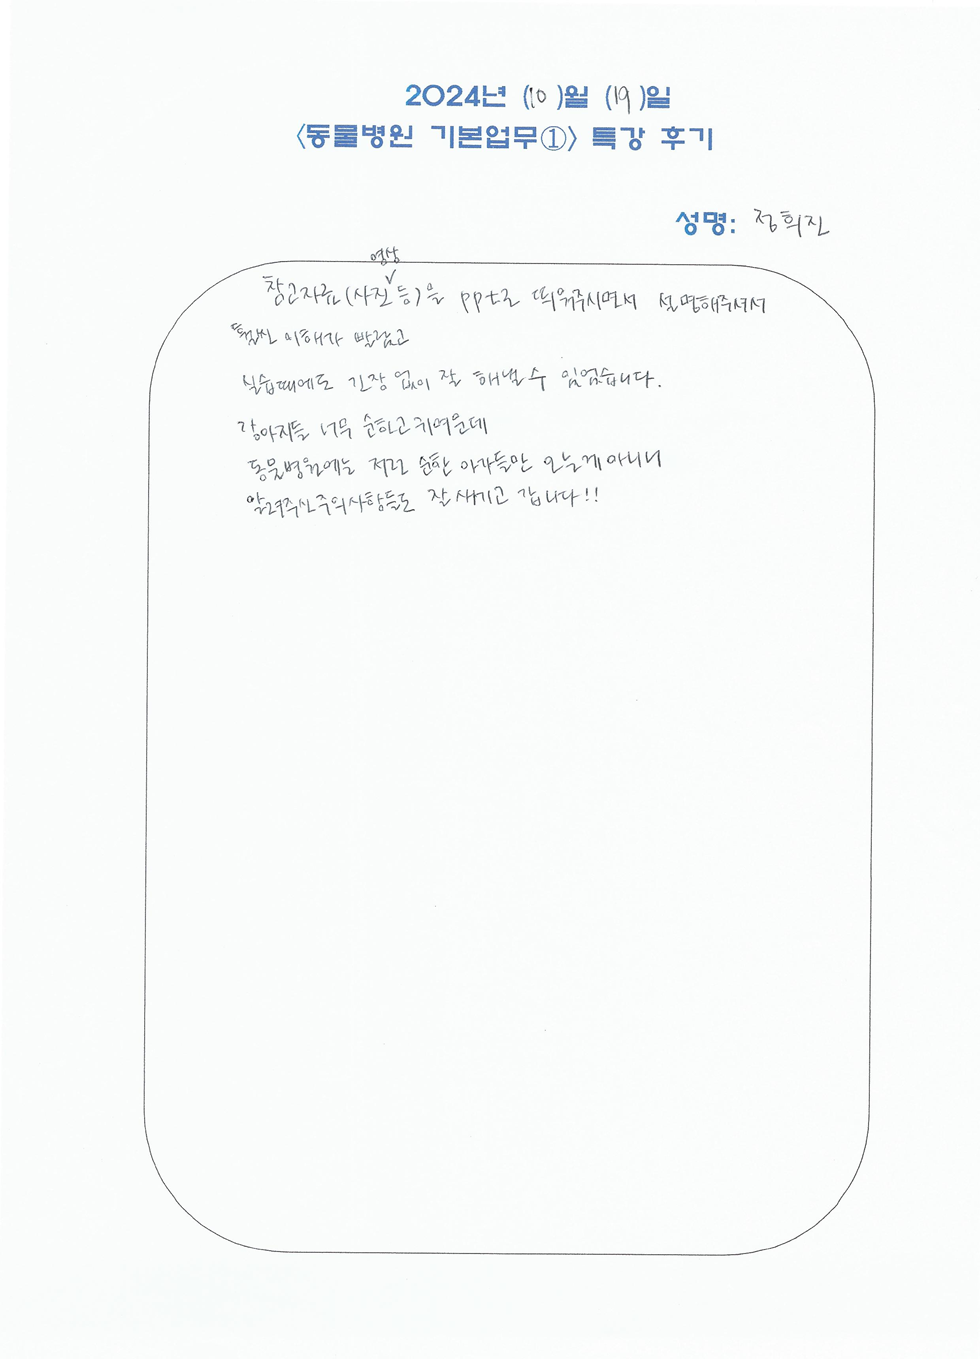 2024년 (10)월 (19)일
<동물병원 기본업무①> 특강 후기
성명: 정희진
영상
참고자료(사진✓등)을 ppt로 띄워주시면서 설명해주셔서
훨씬 이해가 빨랐고
실습때에도 긴장 없이 잘 해낼 수 있었습니다.
강아지들 너무 순하고 귀여운데
동물병원에는 저런 순한 아가들만 오는게 아니니
알려주신 주의사항들도 잘 새기고 갑니다!!